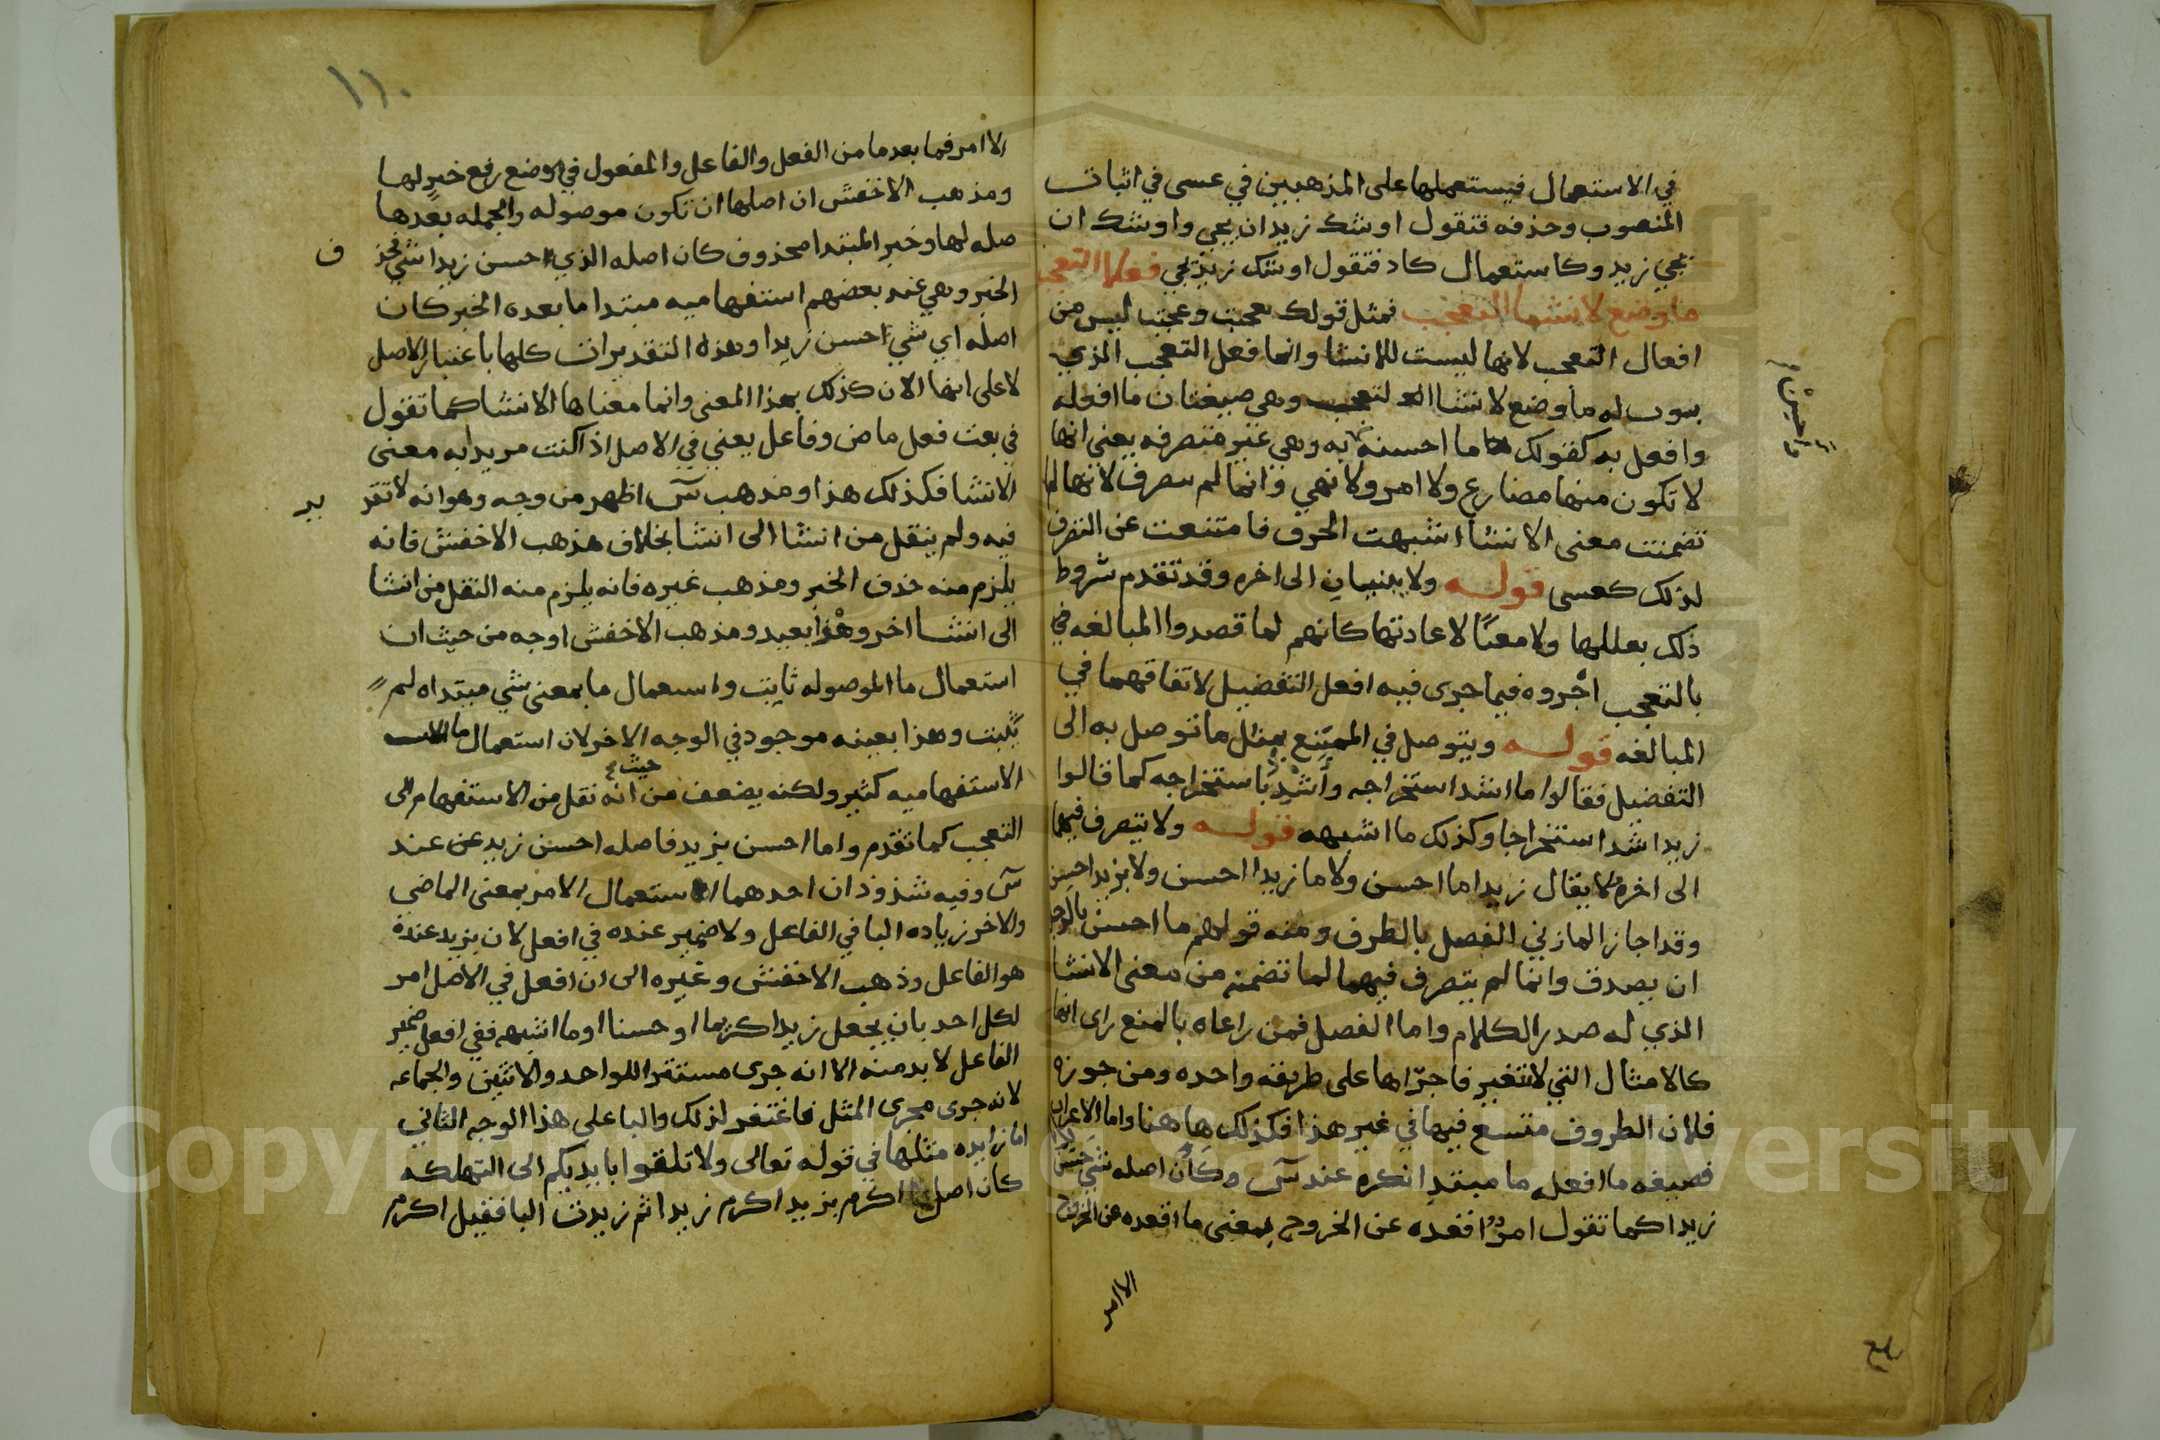 في الاستعمال فيستعملها على المذهبين في عسى في اثبات
المنصوب وحذفه فتقول اوشك زيد ان يجي واوشك ان
يجي زيد وكاستعمال كاد فتقول اوشك زيد يجي فعلا التعجب
ما وضع لانشا التعجب فمثل قولك تعجبت وعجبت ليس من
افعال التعجب لانها ليست للانشا وانما فعل التعجب الذي
بوب له ما وضع لانشا التعجب وهي صيغتان ما افعله
وافعل به كقولك ما احسنه به وهي غير متصرفه يعني انها
لا تكون منها مضارع ولا امر ولا نهي وانما لم تتصرف لانها لما
تضمنت معنى الانشا اشبهت الحرف فامتنعت عن التصرف
لذلك كعسى قوله ولا يبنيان الى اخره وقد تقدم شروط
ذلك بعللها ولا معنًا لاعادتها كانهم لما قصدوا المبالغه في
بالتعجب اجروه فيما جرى فيه افعل التفضيل لاتفاقهما في
المبالغه قوله ويتوصل في الممتنع بمثل ما توصل به الى
التفضيل فقالوا ما اشد استخراجه واشدد باستخراجه كما قالوا
زيد اشد استخراجا وكذلك ما اشبهه قوله ولا يتصرف فيهما
الى اخره لا يقال زيدا ما احسن ولا ما زيدا احسن ولا بزيد احسن
وقد اجاز المازني الفصل بالظرف ومنه قولهم ما احسن بالرجل
ان يصدق وانما لم يتصرف فيهما لما تضمنه من معنى الانشا
الذي له صدر الكلام واما الفصل فمن راعاه بالمنع راى انها
كالامثال التي لا تتغير فاجراها على طريقه واحده ومن جوزه
فلان الظروف متسع فيها في غير هذا فكذلك هاهنا واما الاعراب
فصيغه ما افعله ما مبتدا نكره عند س وكان اصله شي حسّن
زيدا كما تقول امر اقعده عن الخروج بمعنى ما اقعده عن الخروج
الا امر
١١٠
الا امر فما بعد ما من الفعل والفاعل والمفعول في موضع رفع خبر لها
ومذهب الاخفش ان اصلها ان تكون موصوله والجمله بعدها
صله لها وخبر المبتدا محذوف كان اصله الذي احسن زيدا شي فحذف
الخبر وهي عند بعضهم استفهاميه مبتدا ما بعده الخبر كان
اصله اي شي احسن زيدا وهذه التقديرات كلها باعتبار الاصل
لا على انها الان كذلك بهذا المعنى وانما معناها الانشا كما تقول
في بعت فعل ماض وفاعل يعني في الاصل اذا كنت مريدا به معنى
الانشا فكذلك هذا ومذهب س اظهر من وجه وهو انه لا تقدير
فيه ولم ينقل من انشا الى انشا بخلاف مذهب الاخفش فانه
يلزم منه حذف الخبر ومذهب غيره فانه يلزم منه النقل من انشا
الى انشا اخر وهو بعيد ومذهب الاخفش اوجه من حيث ان
استعمال ما الموصوله ثابت واستعمال ما بمعنى شي مبتداه لم
يثبت وهذا بعينه موجود في الوجه الاخر لان استعمال ما
الاستفهاميه كثير ولكنه يضعف من حيث انه نقل من الاستفهام الى
التعجب كما تقدم واما احسن بزيد فاصله احسن زيد عن عند
س وفيه شذوذان احدهما استعمال الامر بمعنى الماضي
والاخر زياده البا في الفاعل ولا ضمير عنده في افعل لان بزيد عنده
هو الفاعل وذهب الاخفش وغيره الى ان افعل في الاصل امر
لكل احد بان يجعل زيدا كريما او حسنا او ما اشبهه ففي افعل ضمير
الفاعل لا بد منه الا انه جرى مستترا للواحد والاثنين والجماعه
لانه جرى مجرى المثل فاغتفر لذلك والبا على هذا الوجه الثاني
اما زايده مثلها في قوله تعالى ولا تلقوا بايديكم الى التهلكه
كان اصل اكرم بزيد اكرم زيدا ثم زيدت البا فقيل اكرم
Copyright © King Saud University